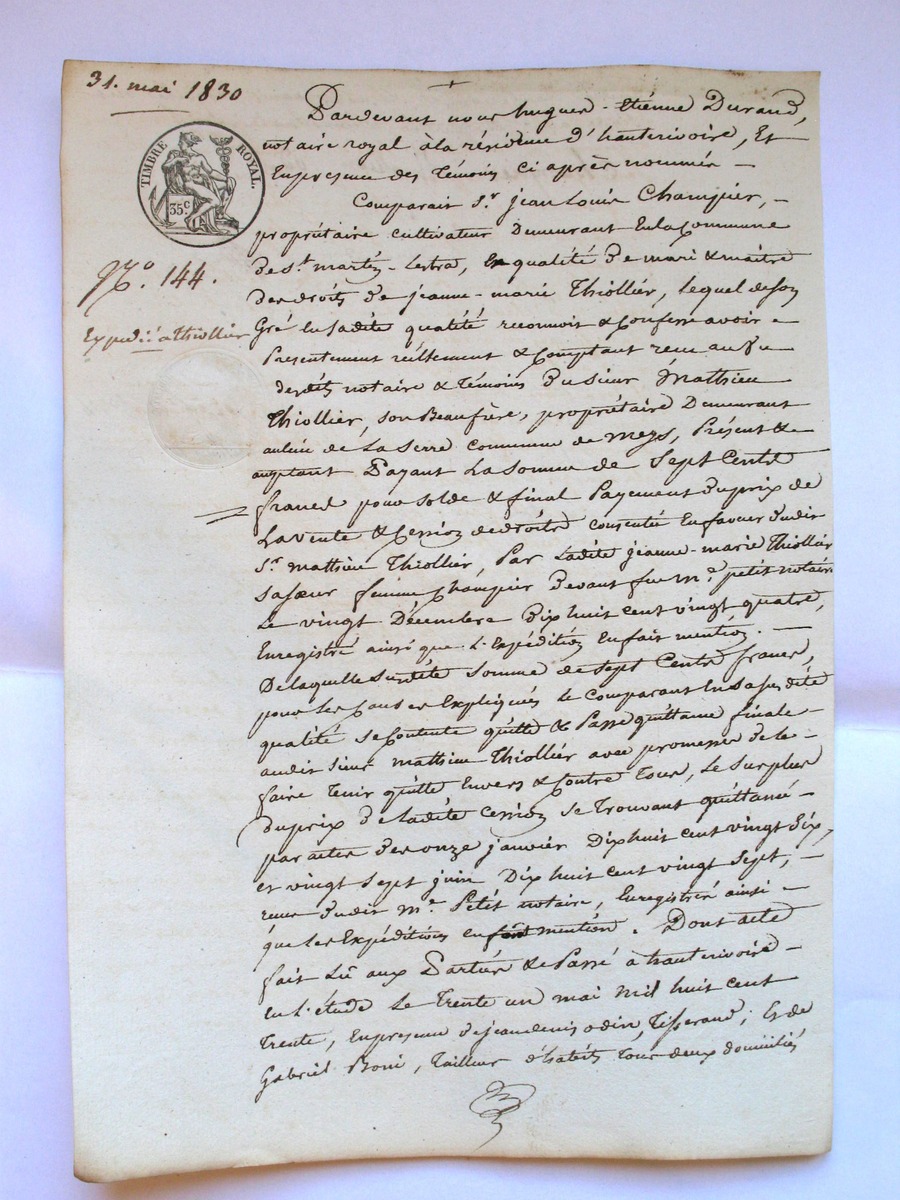 31. mai 1830
TIMBRE ROYAL.
35.c
N.o 144.
Expedié à thiollier
Pardevant nous hugues-Etiénne Durand,
notaire royal à la résidence d'hauterivoire, Et
Enpresence des Témoins ci après nommés —
Comparait S.r jean Louis Champier, —
propriétaire cultivateur Demeurant Enla Commune
de St. martin-Lestra, En qualité de mari & maitre
des droits de jeanne-marie Thiollier, lequel deson
Gré en sadite qualité reconnoit & Confesse avoir =
Présentement réèllement & Comptant recu au Vu
desdits notaire & Témoins du sieur Mathieu
Thiollier, son Beaufrère, propriétaire Demeurant
aulieu de La Serre commune de Meys, Présent &
acceptant Payant La somme de Sept Cents
francs pour solde & final Payement du prix de
La vente & Cession de droits consentie En faveur dudit
S.r mathieu Thiollier, Par Ladite jeanne-marie Thiollier
sa sœur femme Champier devant feu M.e petit notaire
Le vingt Décembre Dix huit cent vingt quatre,
Enregistré ainsi que L'Expédition En fait mention. —
De laquelle susdite somme de sept Cents francs,
pour les Causes Expliquées le comparant En sa susdite
qualité se Contente quitte & Passe quittance finale
audit sieur mathieu Thiollier avec promesse de le =
faire Tenir quitte Envers & Contre Tous, Le surplus
du prix de ladite Cession se Trouvant quittancé =
par actes des onze janvier Dix huit cent vingt six,
et vingt sept juin Dix huit cent vingt sept, —
recus dudit M.e Petit notaire, Enregistrés ainsi =
que les Expéditions en font mention. Dont acte
fait Lû aux Parties & Passé à hauterivoire —
en L'étude Le Trente un mai mil huit cent
Trente, En presence de jean denis odin, Tisserand; Et de
Gabriel Boni, Tailleur d'habits Tous deux domiciliés